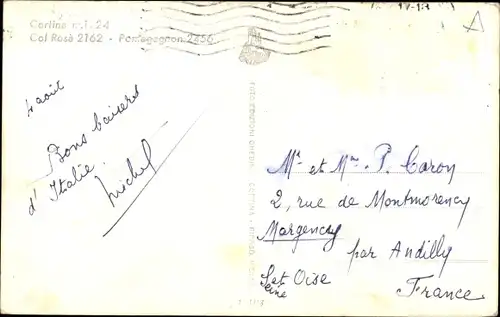 Cortina m.i. 24
Col Rosà 2162 - Pomagagnon 2456
4 août
Bons baisers
d'Italie
Michel
Mr et Mme. P. Caron
2, rue de Montmorency
Margency
par Andilly
Seine et Oise
France